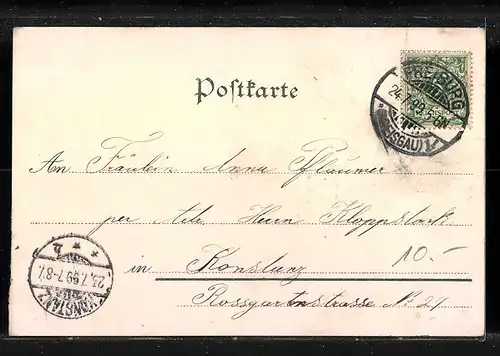 Postkarte
FREIBURG
24.7.99.5-6N.
(BREISGAU) 1
An Fräulein Anna Pflaumer
per Adr. Herrn Kloppstock
10.-
in Konstanz
Rossgartenstrasse No 27
KONSTANZ
25.7.99.7-8V.